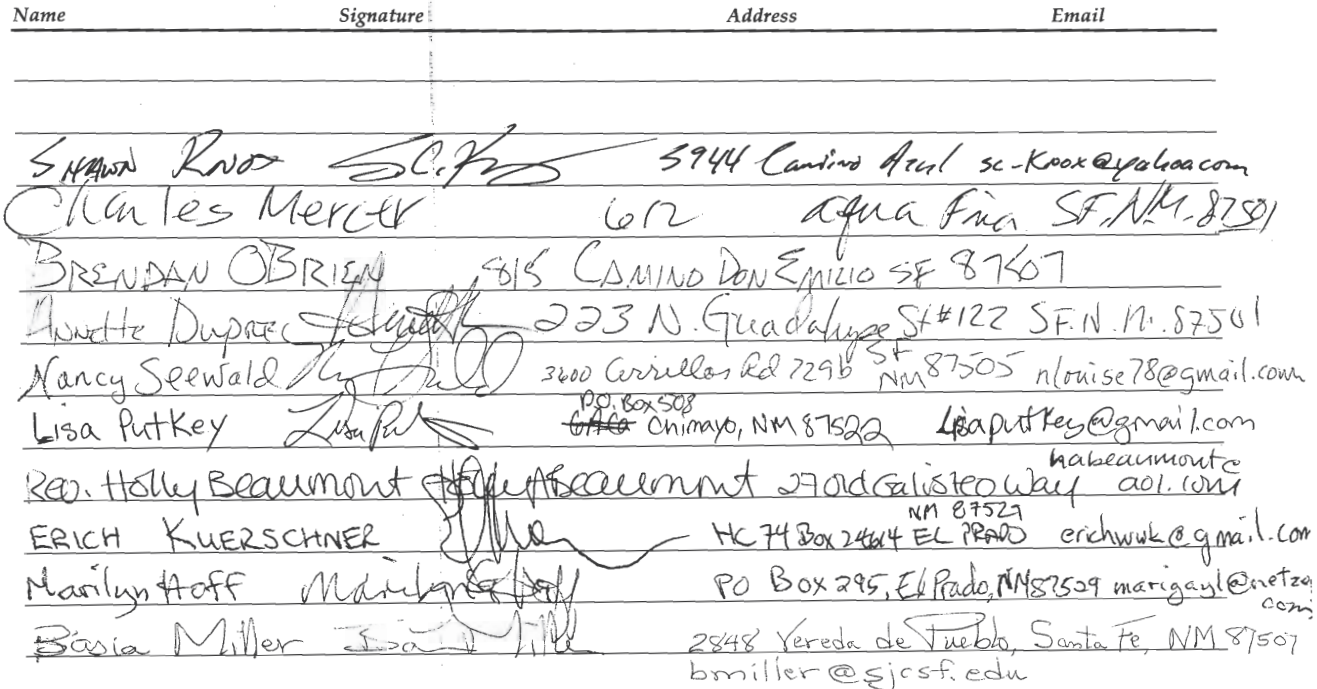 Name Signature Address Email
SHAWN KNOX SC. K 5944 Camino Azul sc-Knox@yahoo.com
Charles Mercer 612 agua Fria SF. N.M. 87501
BRENDAN OBRIEN 815 CAMINO DON EMILIO SF 87507
ANNette Dupree 223 N. Guadalupe St #122 SF. N. M. 87501
Nancy Seewald 3600 Cerrillos Rd 729b SF NM 87505 nlouise78@gmail.com
Lisa Putkey Lisa P.O. Box 508 Chimayo, NM 87522 lisaputkey@gmail.com
Rev. Holly Beaumont Holly Beaumont 27 Old Galisteo Way habeaumont@aol.com
ERICH KUERSCHNER HC 74 Box 24614 EL PRADO NM 87529 erichwwk@gmail.com
Marilyn Hoff Marilyn Hoff PO Box 295, El Prado, NM 87529 marigayl@netzq.com
Basia Miller Basia Miller 2848 Vereda de Pueblo, Santa Fe, NM 87507
bmiller@sjcsf.edu